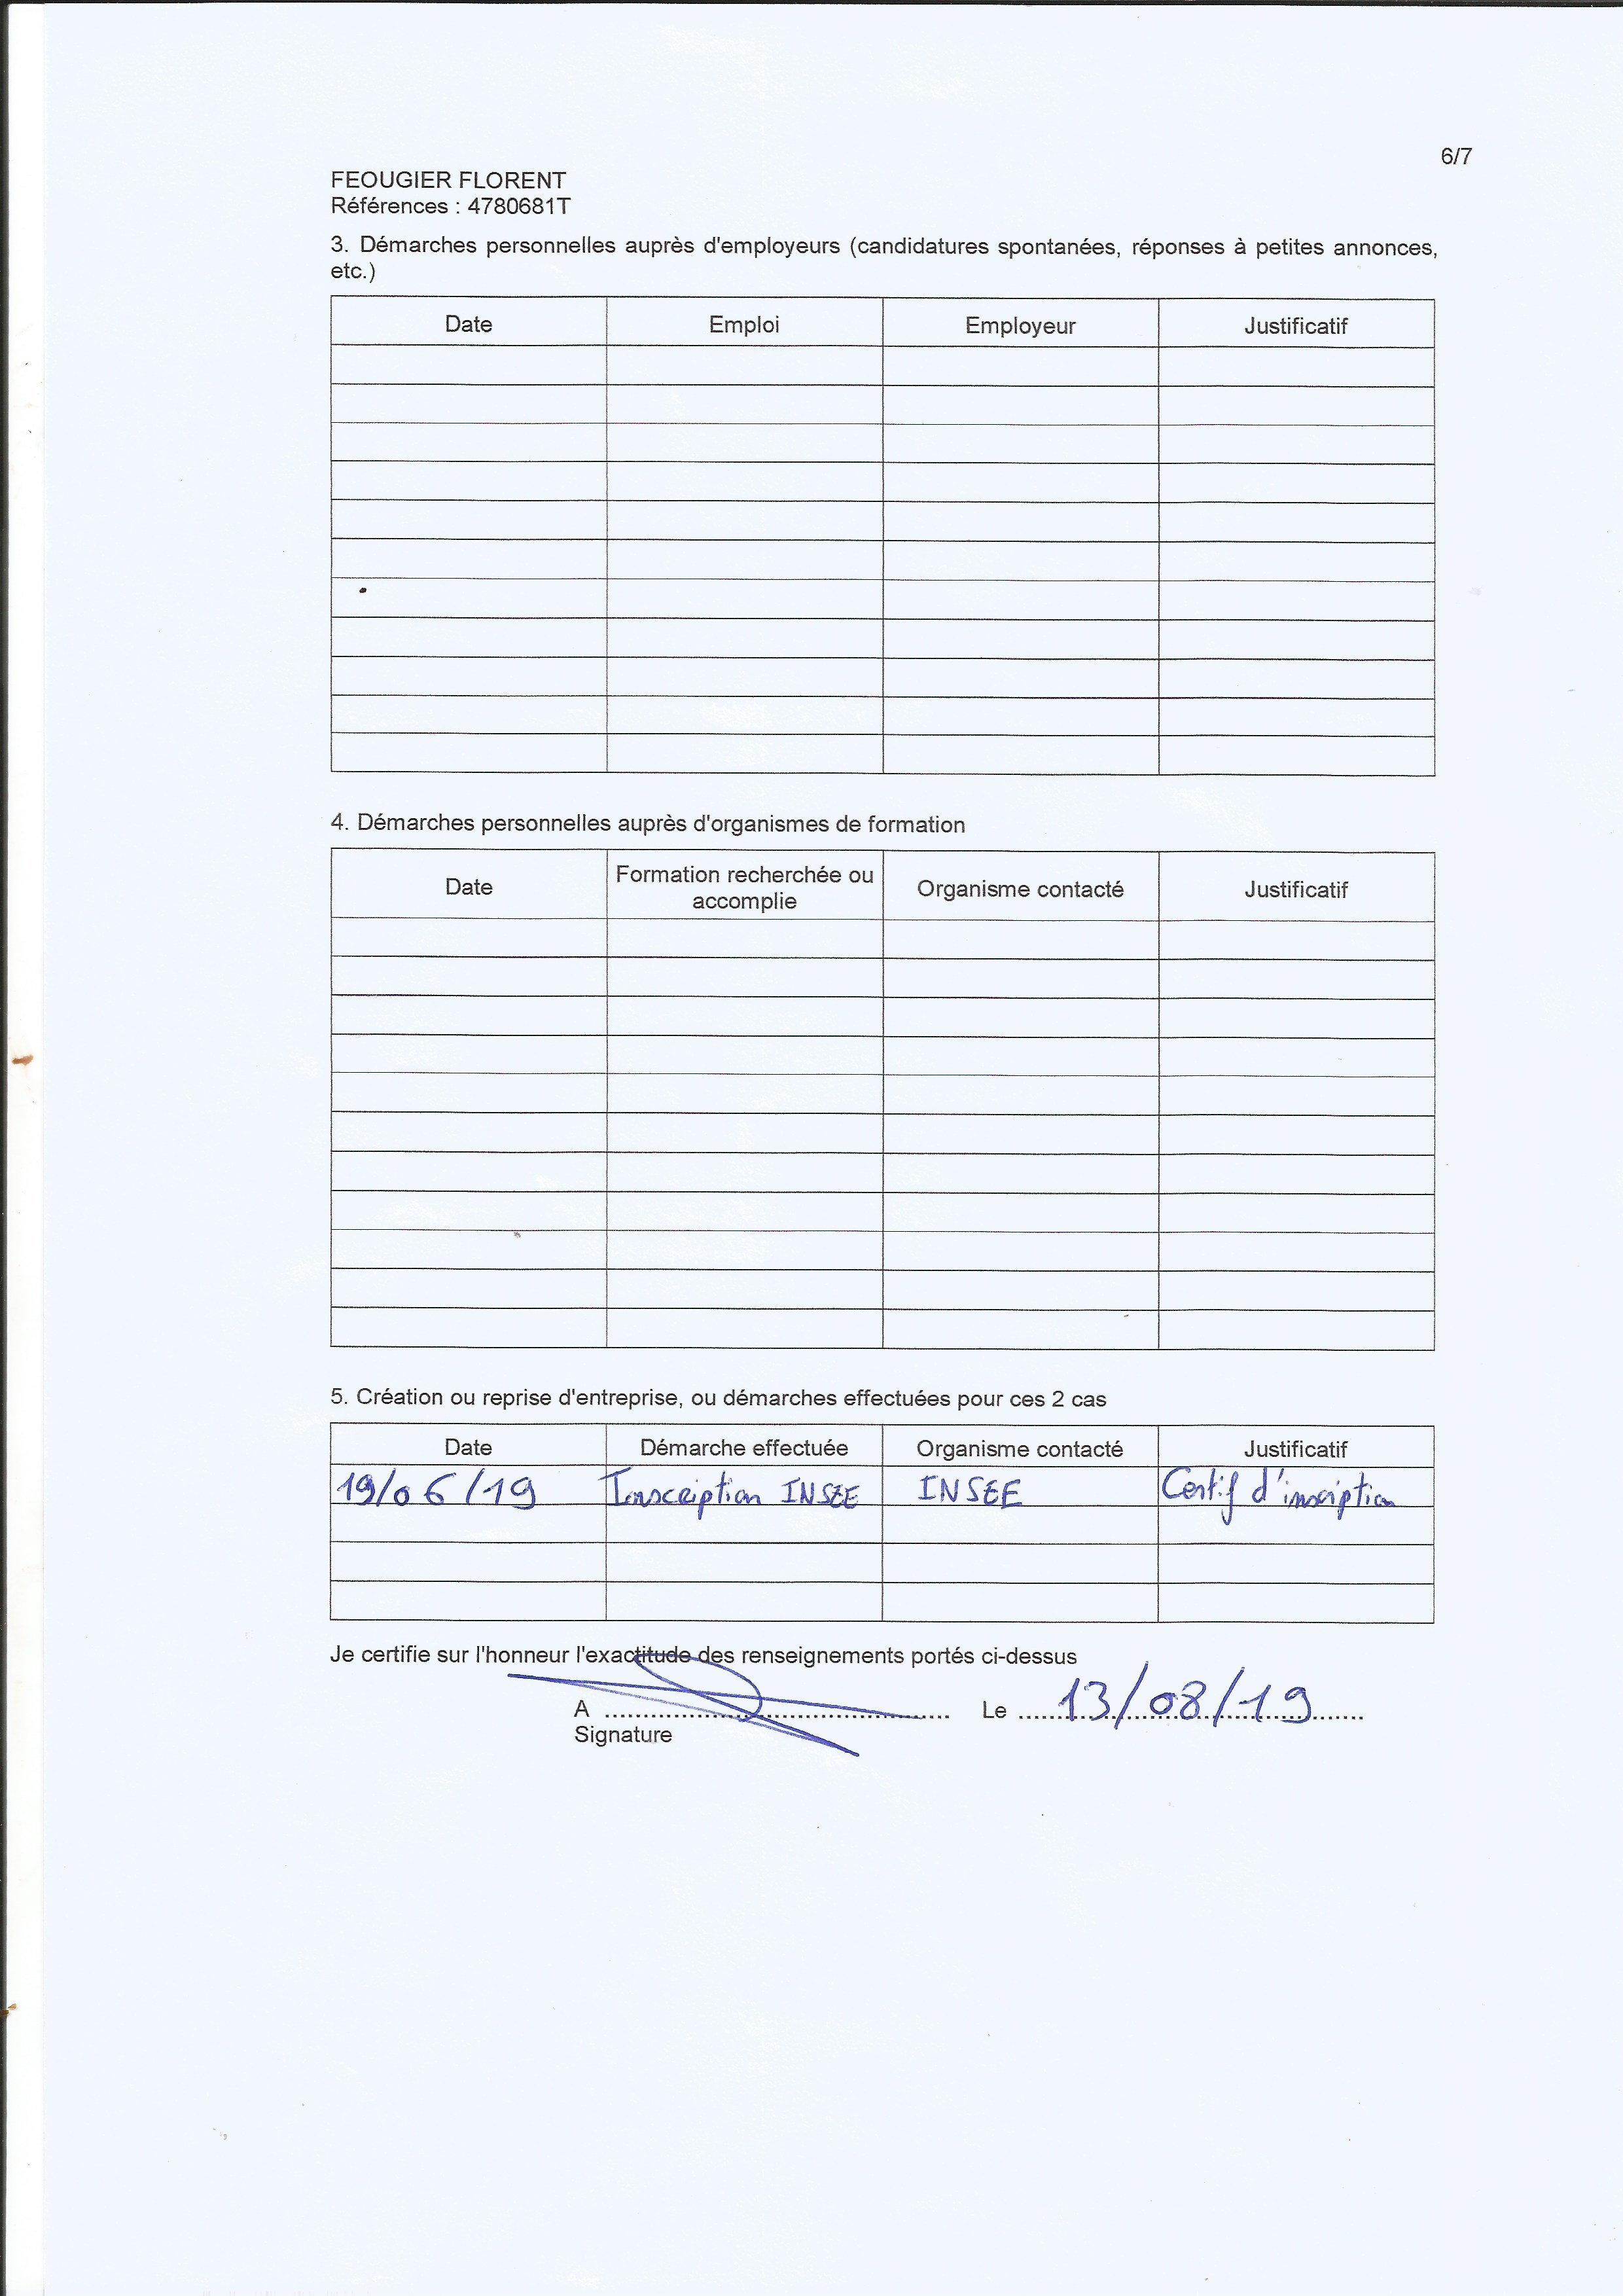 6/7
FEOUGIER FLORENT
Références : 4780681T
3. Démarches personnelles auprès d'employeurs (candidatures spontanées, réponses à petites annonces,
etc.)
Date Emploi Employeur Justificatif
4. Démarches personnelles auprès d'organismes de formation
Date Formation recherchée ou accomplie Organisme contacté Justificatif
5. Création ou reprise d'entreprise, ou démarches effectuées pour ces 2 cas
Date Démarche effectuée Organisme contacté Justificatif
19/06/19 Inscription INSEE INSEE Certif d'inscription
Je certifie sur l'honneur l'exactitude des renseignements portés ci-dessus
A .................................................... Le 13/08/19
Signature